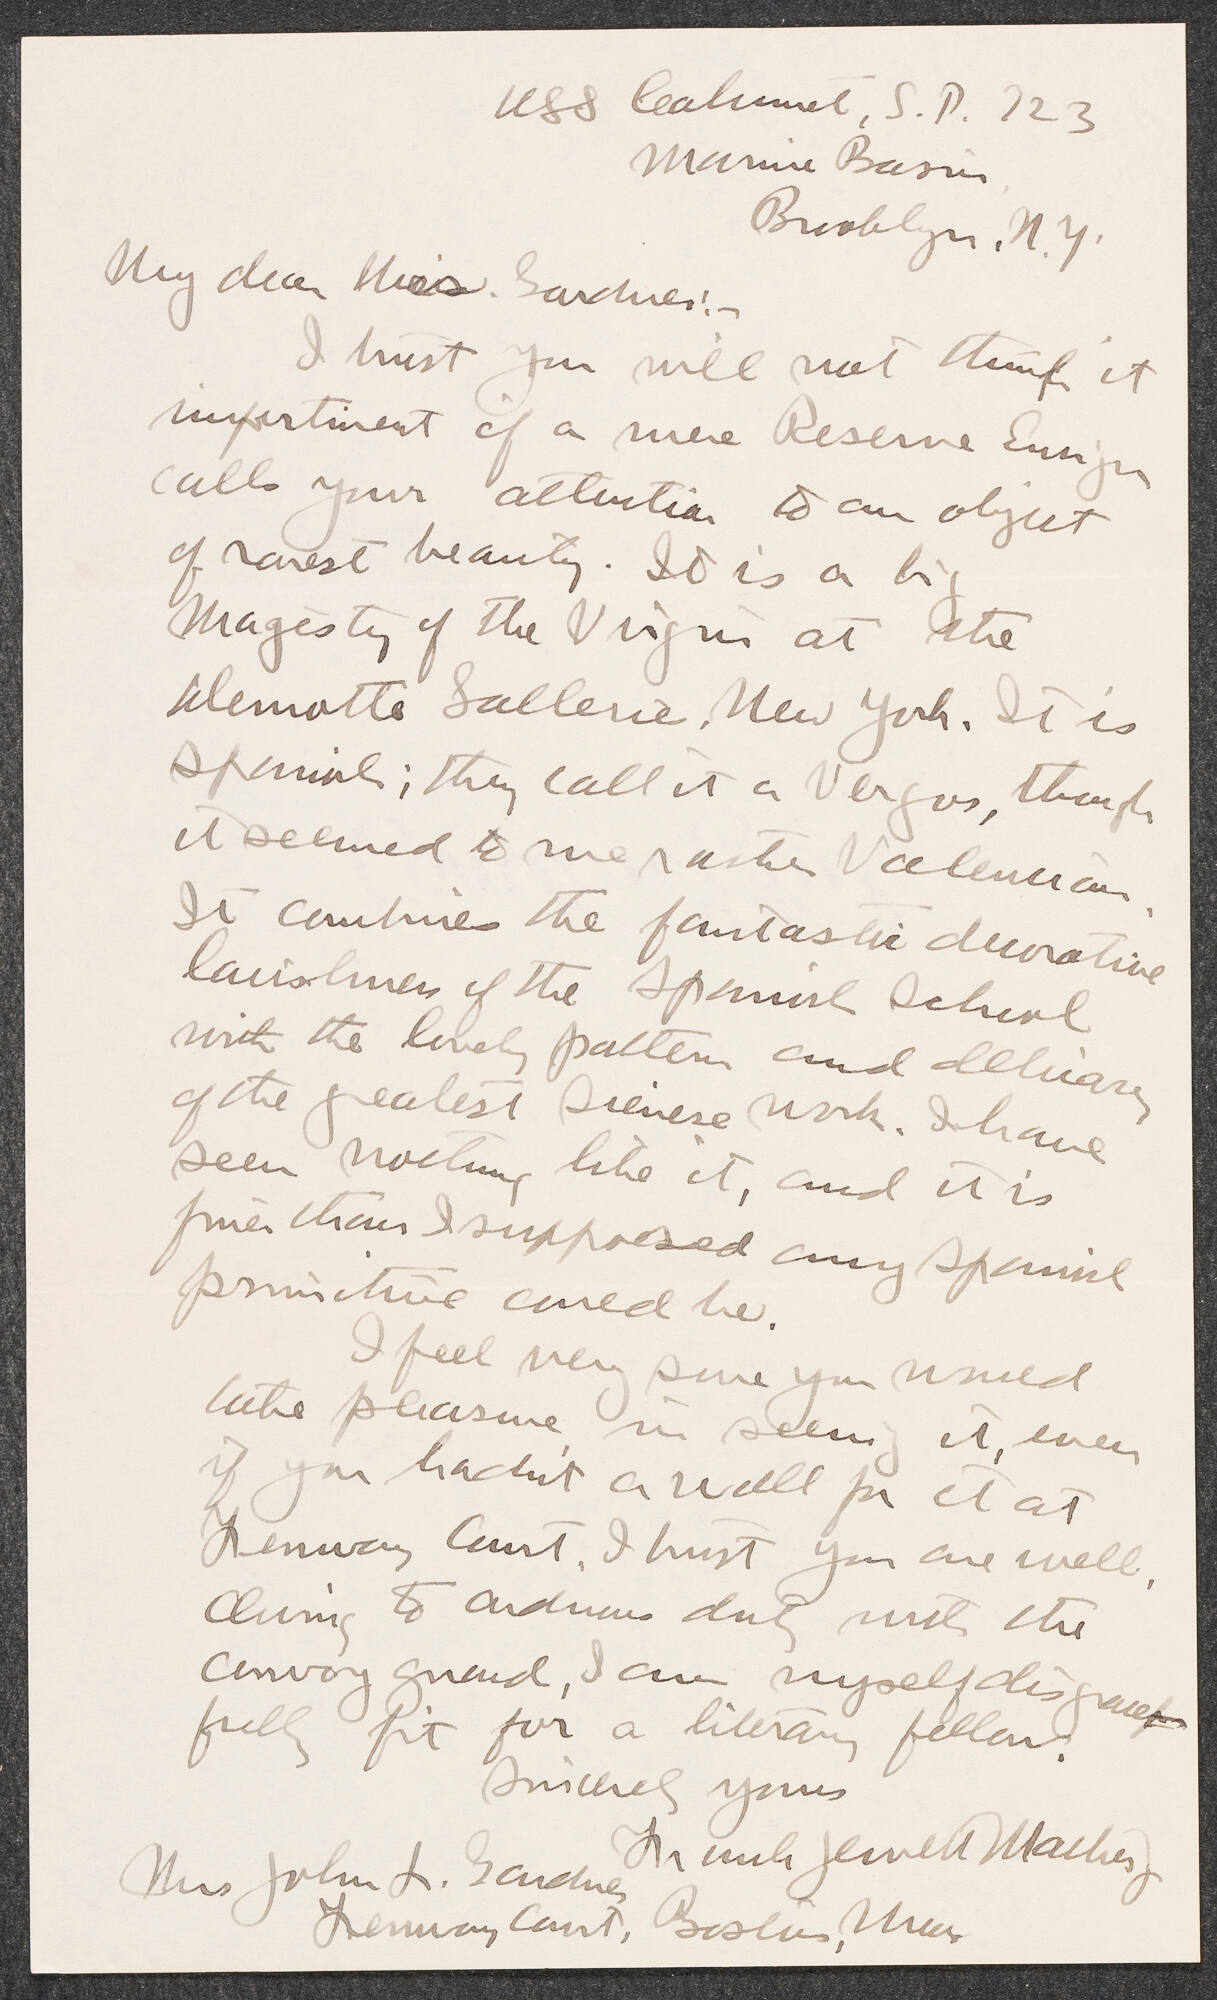 USS Calumet, S.P. 723
Marine Basin
Brooklyn, N.Y.
My dear Mrs. Gardner:-
I trust you will not think it
impertinent if a mere Reserve Ensign
calls your attention to an object
of rarest beauty. It is a big
Magesty of the Virgin at the
Demotte Gallerie, New York. It is
Spanish; they call it a Vergos, though
it seemed to me rather Valencian.
It combines the fantastic decorative
lavishness of the Spanish School
with the lovely pattern and delicacy
of the greatest Sienese work. I have
seen nothing like it, and it is
finer than I supposed any Spanish
primitive could be.
I feel very sure you would
take pleasure in seeing it, even
if you hadn't a wall for it at
Fenway Court. I trust you are well.
Owing to arduous duty with the
convoy guard, I am myself disgrace
fully fit for a literary fellow.
Sincerely yours
Frank Jewett Mather Jr
Mrs John L. Gardner
Fenway Court, Boston, Mass